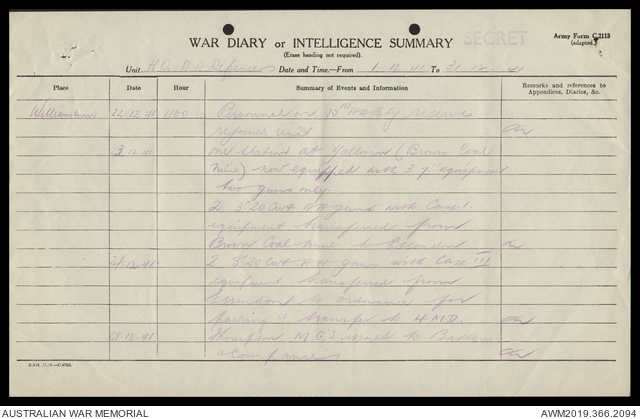 SECRET
Army Form C.2118
(adapted.)
WAR DIARY or INTELLIGENCE SUMMARY
(Erase heading not required).
Unit. HQ. A A Defences Date and Time.—From 1.12.41 To 31.12.41
Place Date Hour Summary of Events and Information Remarks and references to Appendices, Diaries, &c.
Williamstown 22.12.41 1100 Personnel on 10th AA Bty reserve
reformed unit
23.12.41 one station at Yallourn (Brown Coal
Mine) now equipped with 3.7" equipment
two guns only.
2 3" 20 Cwt AA guns with Case I.
equipment transferred from
Brown Coal Mine to Essendon
24.12.41 2 3" 20 Cwt AA guns with Case III
equipment transferred from
Essendon to ordnance for
packing & transfer to 4 M.D.
28.12.41 Thompson M.G's issued to
& Companies
AUSTRALIAN WAR MEMORIAL
AWM2019.366.2094